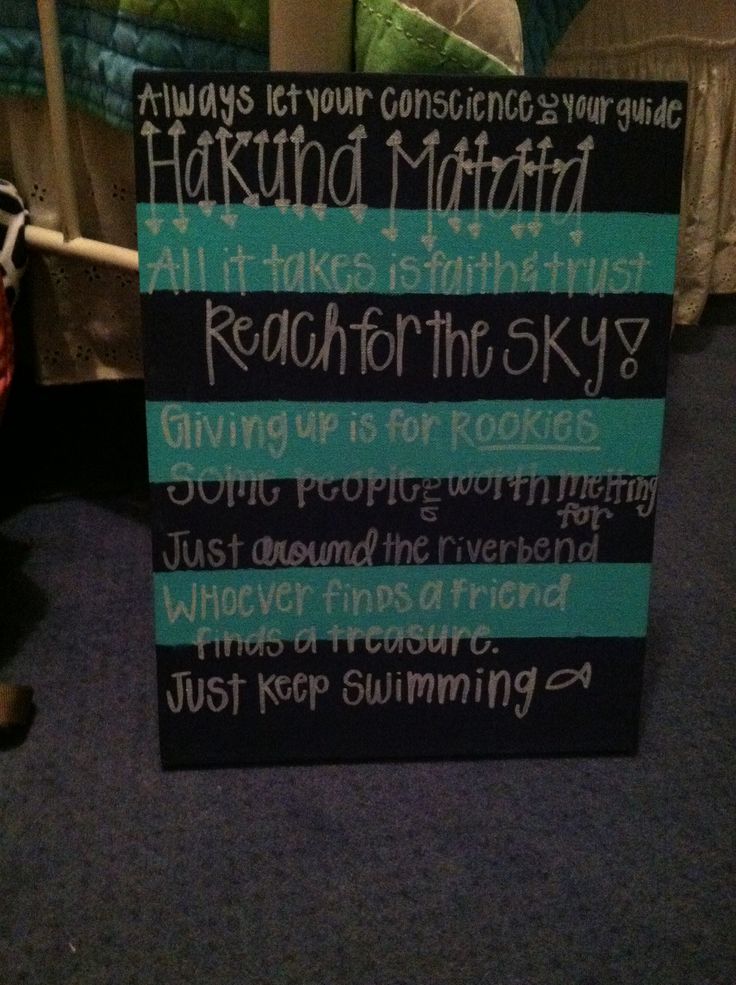 Always let your conscience be your guide
Hakuna Matata
All it takes is faith & trust
Reach for the sky!
Giving up is for ROOKIES
Some people are worth melting for
Just around the riverbend
Whoever finds a friend
finds a treasure.
Just keep swimming